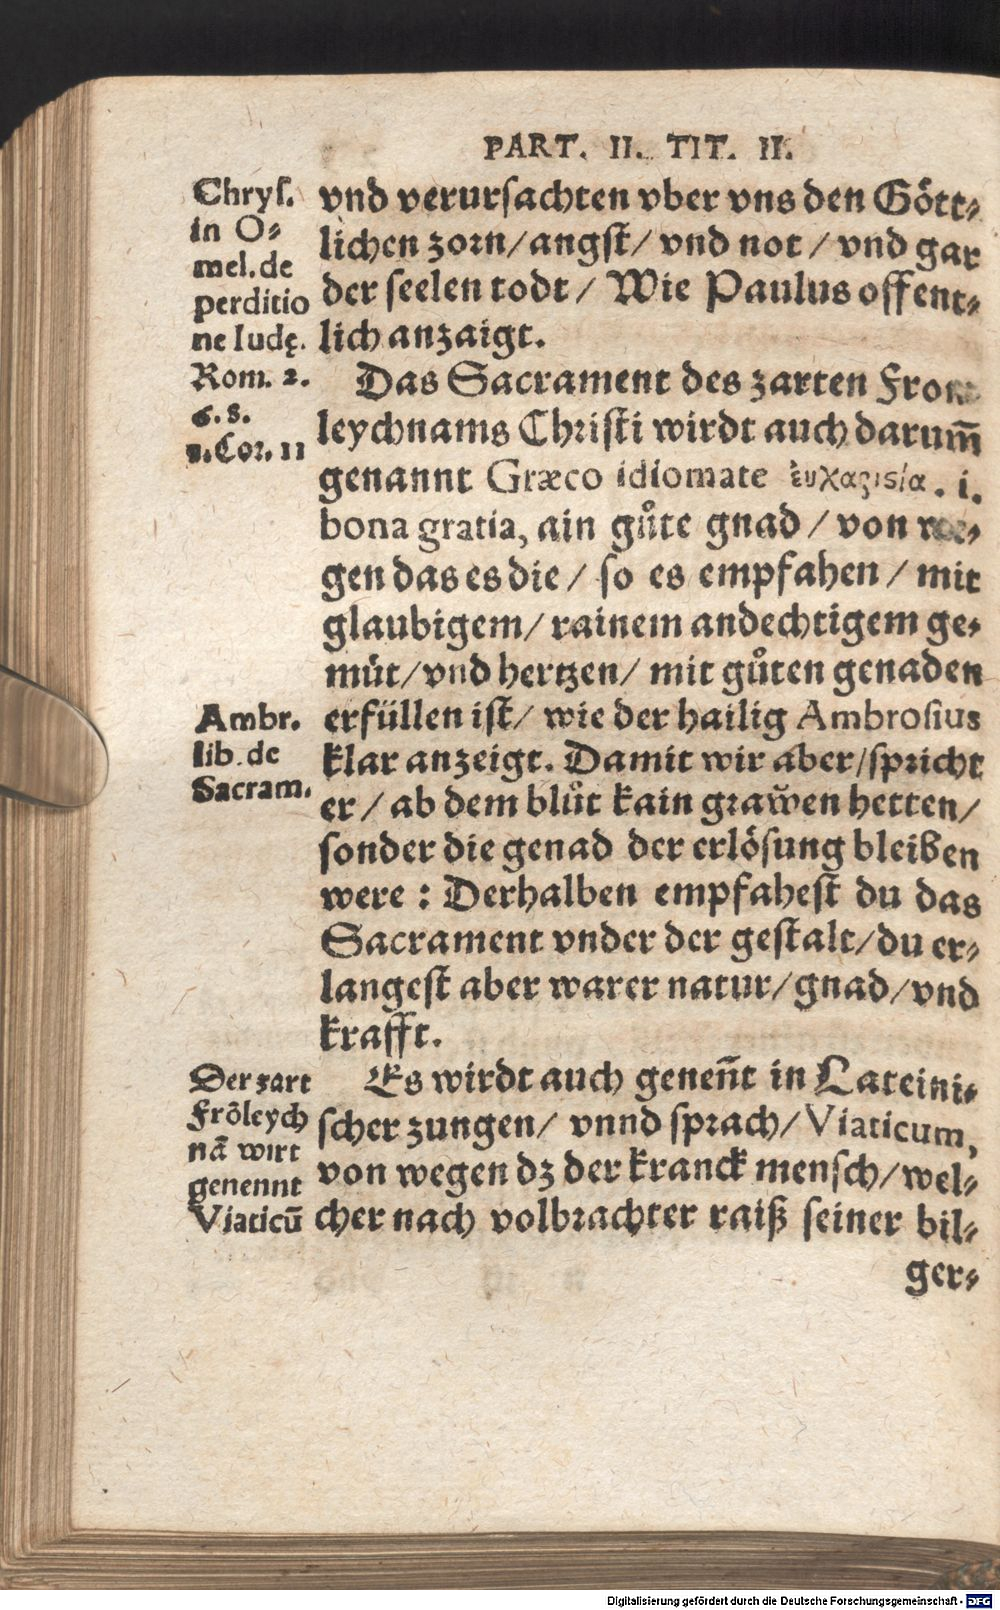 PART. II. TIT. II.
Chryſ.
in O-
mel. de
perditio
ne Iudę.
Rom. 2.
6. 8.
1. Cor. 11
vnd verurſachten vber vns den Gött-
lichen zorn/angſt/ vnd not / vnd gar
der ſeelen todt / Wie Paulus offent-
lich anzaigt.
Das Sacrament des zarten Fron
leychnams Chriſti wirdt auch darum̄
genannt Græco idiomate ἐυχαριςία. i.
bona gratia, ain gůte gnad / von we-
gen das es die / ſo es empfahen / mit
glaubigem/ rainem andechtigem ge-
müt/vnd hertzen/ mit gůten genaden
Ambr.
lib. de
Sacram.
erfüllen iſt/ wie der hailig Ambroſius
klar anzeigt. Damit wir aber/ſpricht
er / ab dem blůt kain graẅen hetten/
ſonder die genad der erlöſung bleiben
were : Derhalben empfaheſt du das
Sacrament vnder der geſtalt/du er-
langeſt aber warer natur/gnad/vnd
krafft.
Der zart
Frōleych
nā wirt
genennt
Viaticū
Es wirdt auch genen̄t in Lateini-
ſcher zungen/ vnnd ſprach/ Viaticum,
von wegen dz der kranck menſch/wel-
cher nach volbrachter raiß ſeiner bil-
ger-
Digitalisierung gefördert durch die Deutsche Forschungsgemeinschaft - DFG